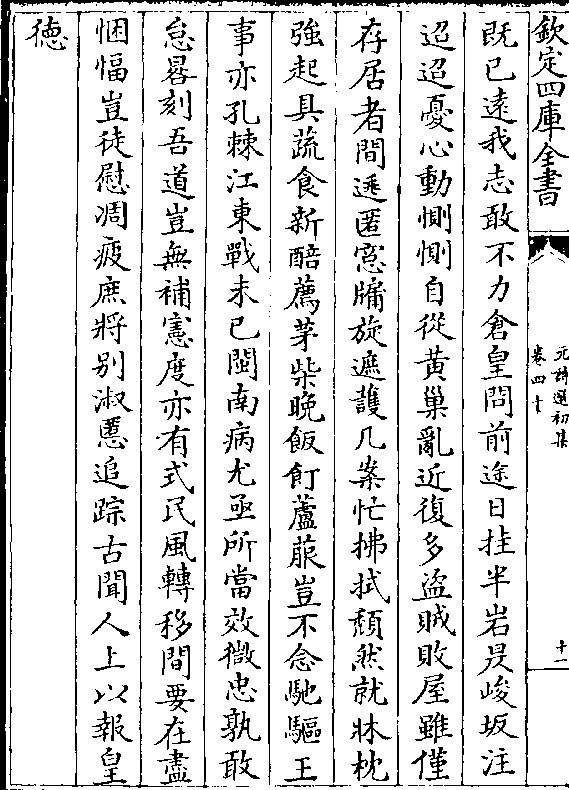 欽定四庫全書
元詩選初集
卷四十
十一
既已遠我志敢不力倉皇問前途日挂半岩昃峻坂注
迢迢憂心動惻惻自從黃巢亂近復多盜賊敗屋雖僅
存居者間遞匿窓牖旋遮護几案忙拂拭頹然就牀枕
強起具蔬食新醅薦茅柴晚飯飣蘆菔豈不念馳驅王
事亦孔棘江東戰未已閩南病尤亟所當效微忠孰敢
怠晷刻吾道豈無補憲度亦有式民風轉移間要在盡
悃愊豈徒慰凋疲庶將别淑慝追踪古聞人上以報皇
徳